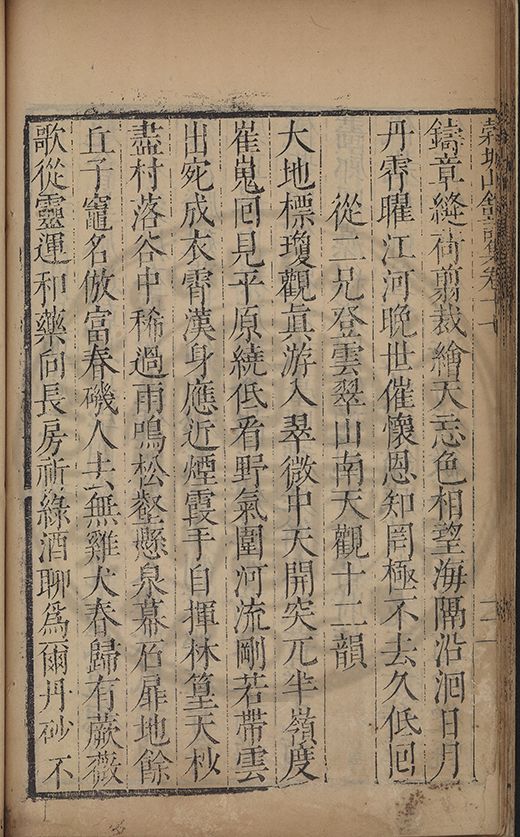 穀城山館詩集卷
鑄章縫荷翦裁繪天忘色相望海隔沿洄日月
丹霄曜江河晚世催懷恩知罔極不去久低回
從二兄登雲翠山南天觀十二韻
大地標瓊觀眞游入翠微中天開突兀半嶺度
崔嵬回見平原繞低看野氣圍河流剛若帶雲
出宛成衣霄漢身應近煙霞手自揮林篁天杪
盡村落谷中稀過雨鳴松壑懸泉幕石扉地餘
丘子竈名倣富春磯人去無雞犬春歸有蕨薇
歌從靈運和藥向長房祈綠酒聊爲爾丹砂不